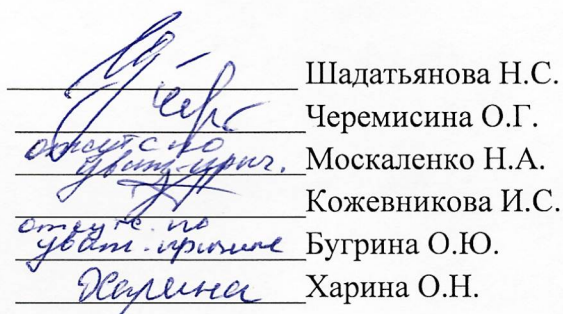 Шадатьянова Н.С.
Черемисина О.Г.
отсутс по уваж. прич. Москаленко Н.А.
Кожевникова И.С.
отсутс. по уваж. причине Бугрина О.Ю.
Харина Харина О.Н.